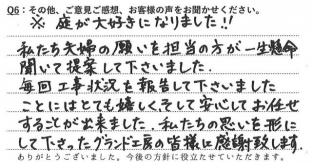 Q6:その他、ご意見ご感想、お客様の声をお聞かせください。
※ 庭が大好きになりました!!
私たち夫婦の願いを担当の方が一生懸命
聞いて提案して下さいました。
毎回工事状況を報告して下さいました
ことにはとても嬉しくそして安心してお任せ
することが出来ました。私たちの思いを形に
して下さったグランド工房の皆様に感謝致します。
ありがとうございました。今後の方針に役立たせていただきます。